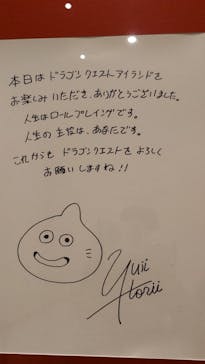 本日はドラゴンクエストアイランドを
お楽しみいただき、ありがとうございました。
人生はロールプレイングです。
人生の主役は、あなたです。
これからもドラゴンクエストをよろしく
お願いしますね!!
Yuji
Horii